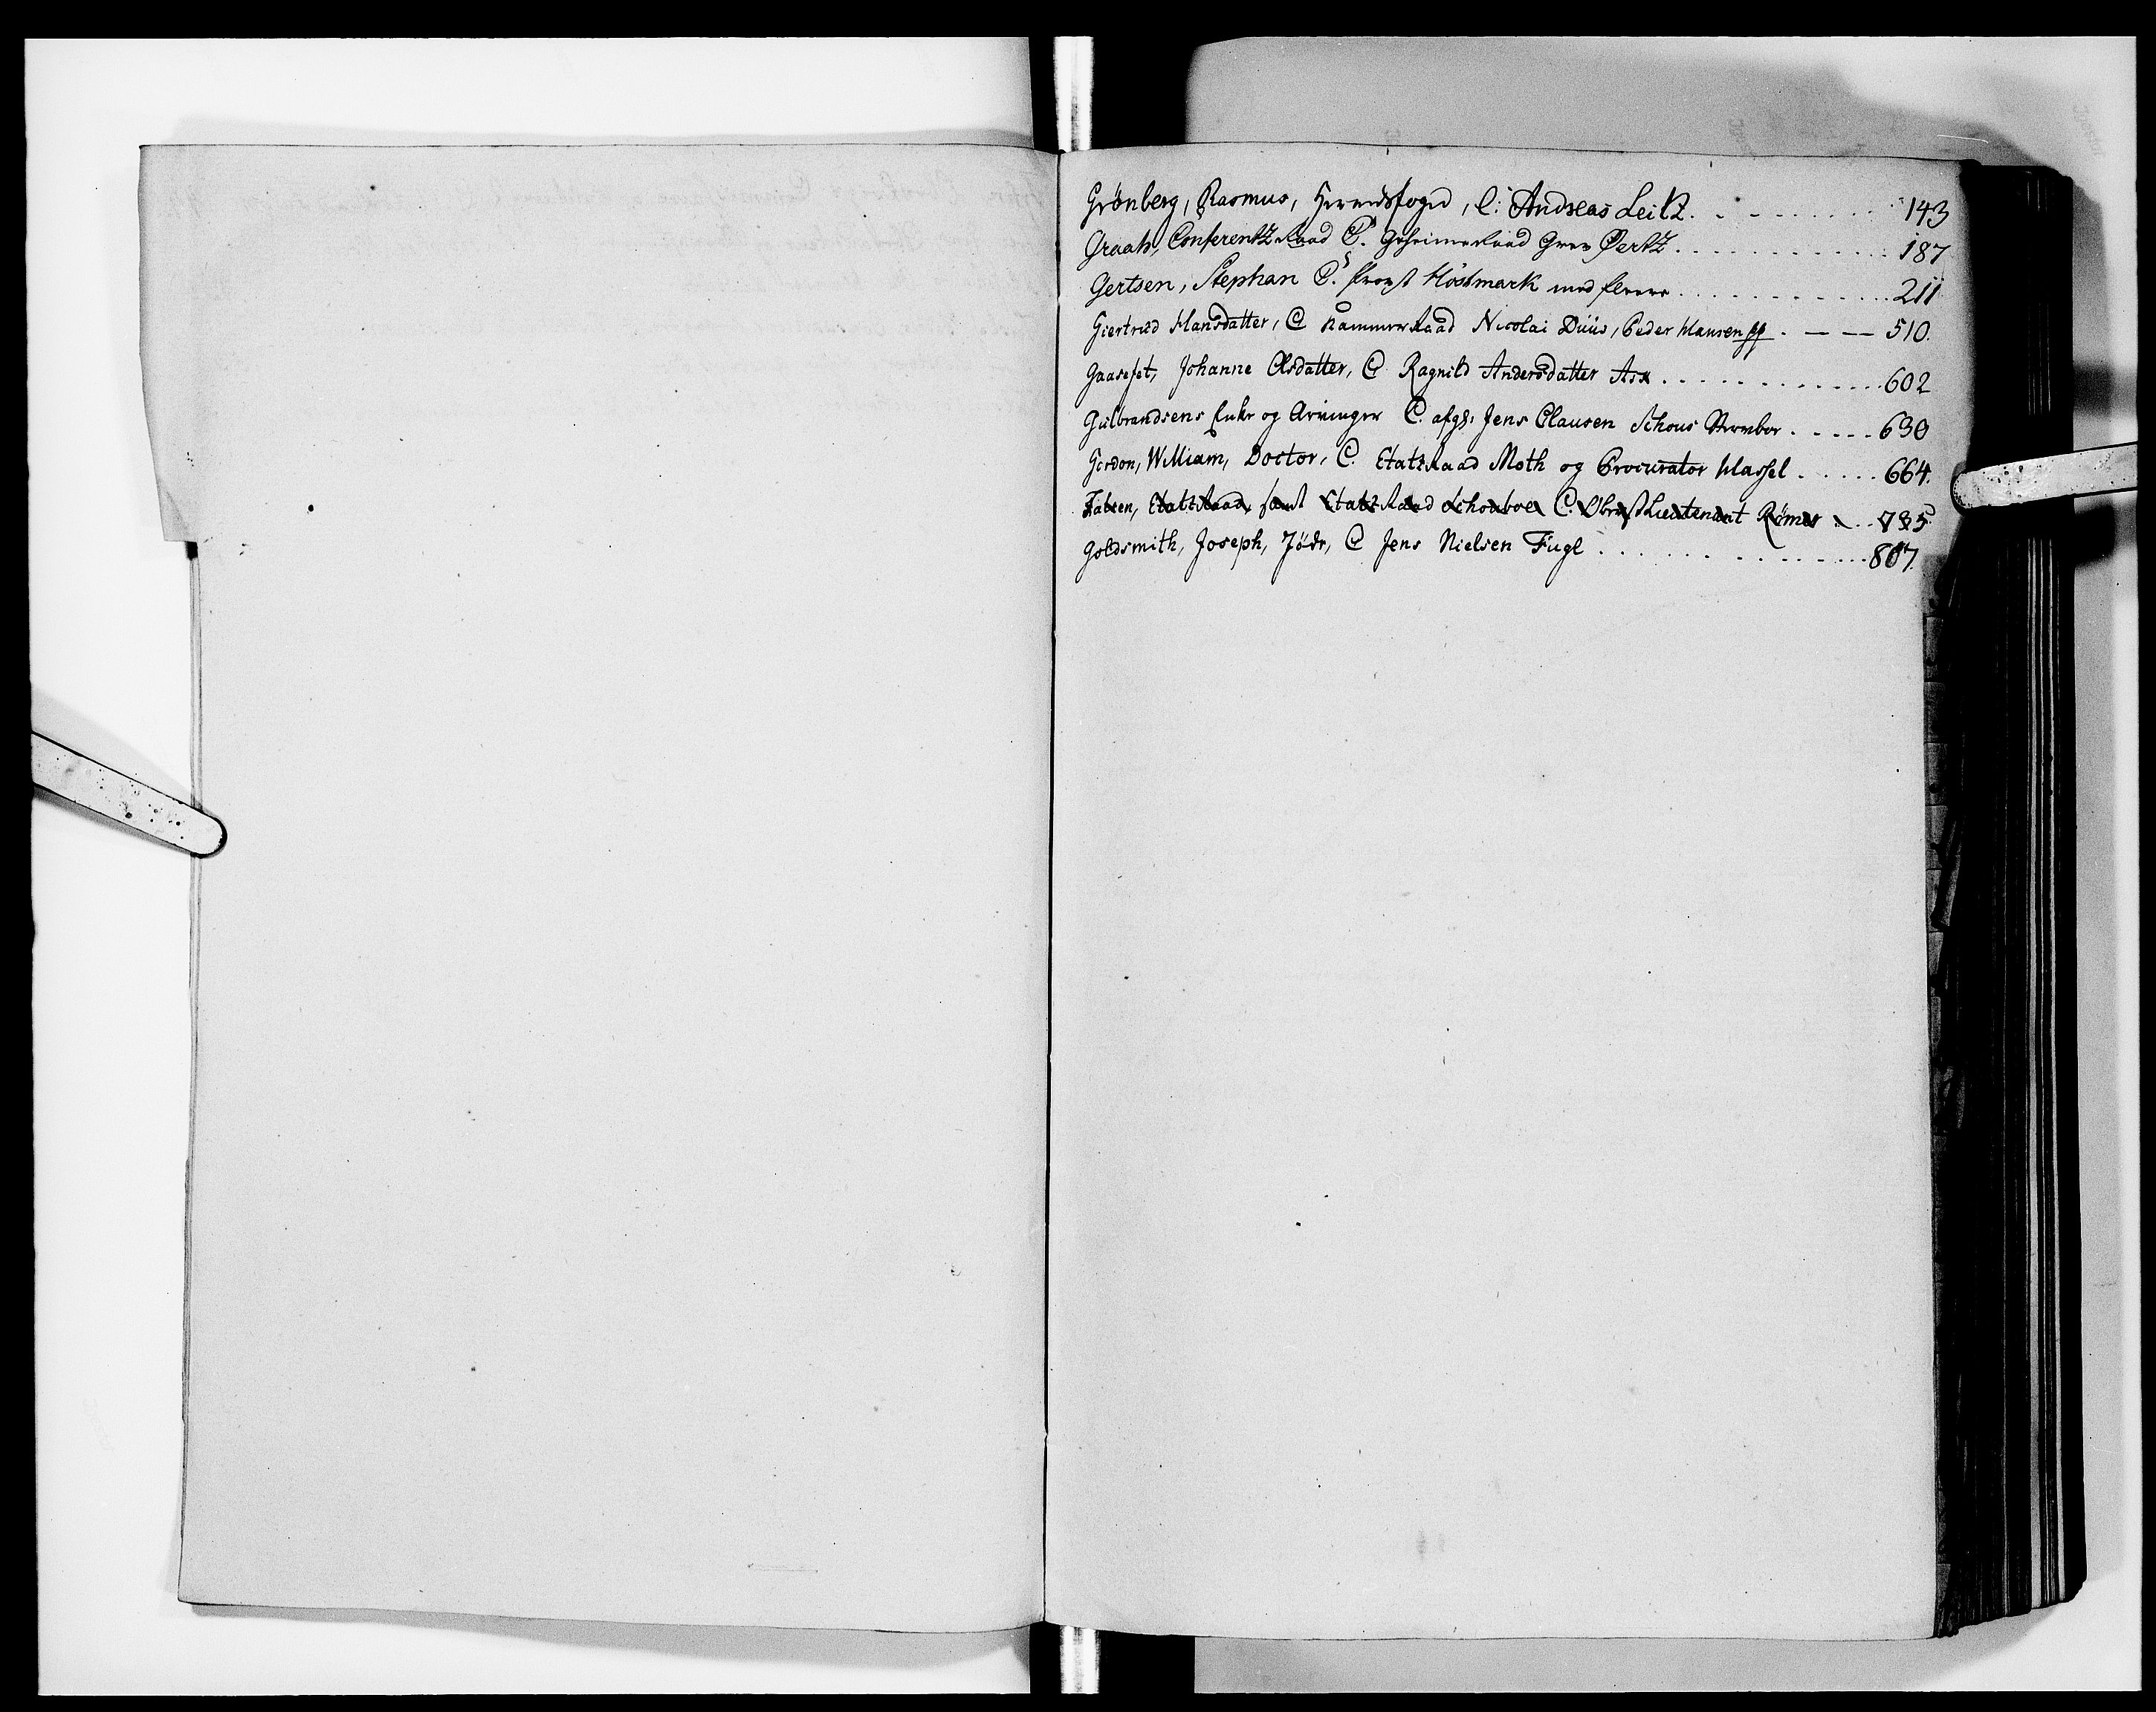 Grönberg, Rasmus, Herredsfoged, C: Andreas Leitz. 143
Graah, ConferentzRaad C. GeheimeRaad Grev Oertz 187
Gertsen, Stephan C. Provst Höstmark med flere 211
Giertrud Hansdatter, C KammerRaad Nicolai Düüs, Peder Hansen pp. 510.
Gaaseset, Johanne Olsdatter, C Ragnild Andersdatter Arx 602
Gulbrandsens Enke og Arvinger C. afg: Jens Clausen Schous Sterboe 630
Gordon, William, Doctor, C. EtatsRaad Moth og Procurator Hassel 664.
Falsen, EtatsRaad, samt EtatsRaad Schouboe C. ObristLieutenant Römer 735
Goldsmith, Joseph, Jöde, C Jens Nielsen Fugl 807.